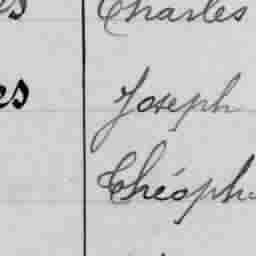 Charles
es Joseph
Théoph